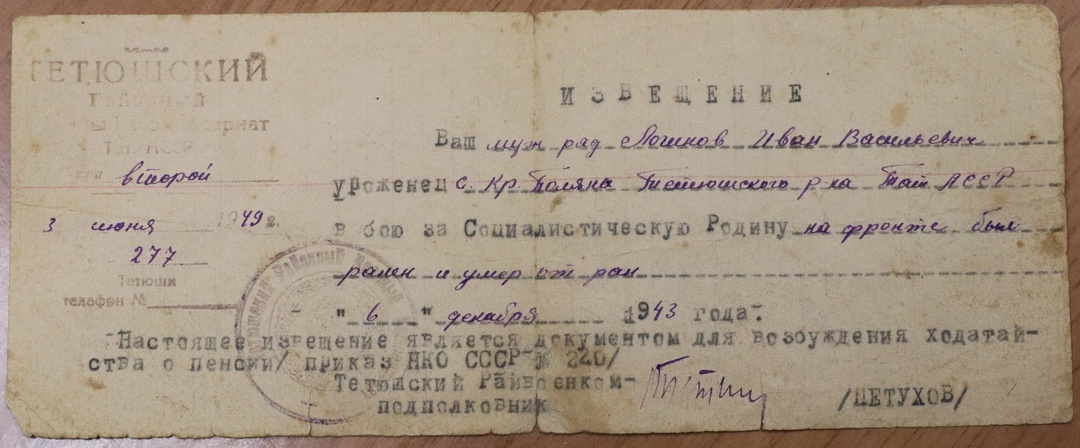 ТЕТЮШСКИЙ
Районный
Военный Комиссариат
второй
3 июня 1949 г.
277
Тетюши
телефон №
ИЗВЕЩЕНИЕ
Ваш муж ряд Логинов Иван Васильевич
уроженец с. Кр. Поляна Тетюшского р-на Тат АССР
в бою за Социалистическую Родину на фронте был
ранен и умер от ран
"6" декабря 1943 года.
Настоящее извещение является документом для возбуждения ходатай-
ства о пенсии/ приказ НКО СССР № 220/
Тетюшский Райвоенком-
подполковник /ПЕТУХОВ/